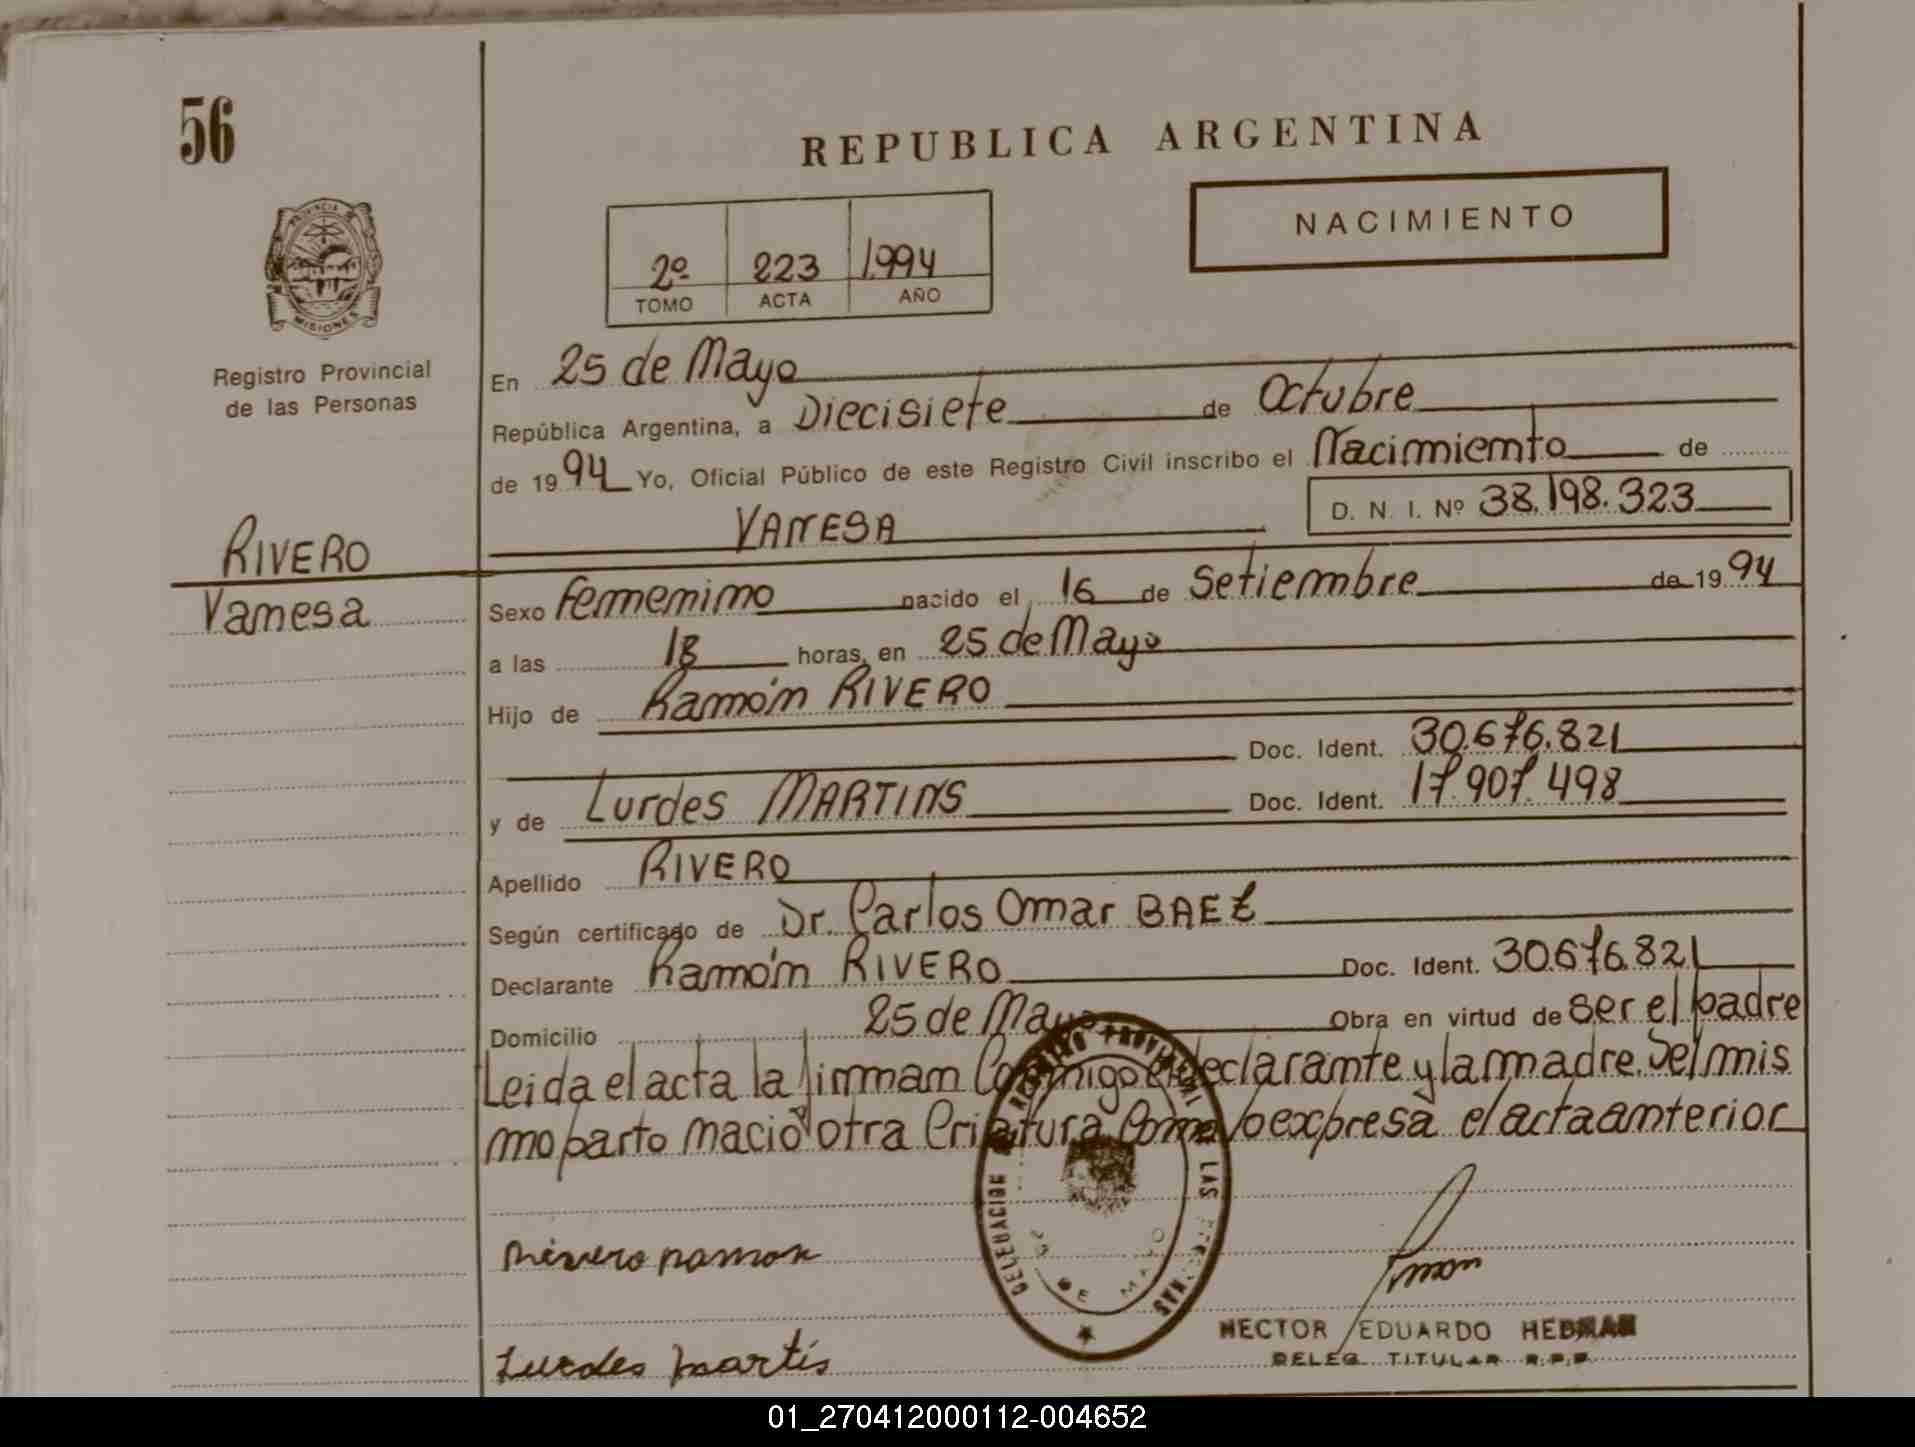 56
REPUBLICA ARGENTINA
NACIMIENTO
2º 223 1.994
TOMO ACTA AÑO
PROVINCIA DE
MISIONES
Registro Provincial
de las Personas
En 25 de Mayo
República Argentina, a Diecisiete de Octubre
de 1994 Yo, Oficial Público de este Registro Civil inscribo el Nacimiento de
VANESA D. N. I. Nº 38.198.323
RIVERO
Vanesa
Sexo Femenino nacido el 16 de Setiembre de 1994
a las 18 horas, en 25 de Mayo
Hijo de Ramón RIVERO
Doc. Ident. 30.676.821
y de Lurdes MARTINS Doc. Ident. 17.907.498
Apellido RIVERO
Según certificado de Dr. Carlos Omar BAEZ
Declarante Ramón RIVERO Doc. Ident. 30.676.821
Domicilio 25 de Mayo Obra en virtud de ser el padre
Leida el acta la firman Conmigo el declarante y la madre. Del mis
mo parto nació otra Criatura Como lo expresa el acta anterior
DELEGACION REGISTRO PROVINCIAL LAS PERSONAS
25 DE MAYO
Rivero ramon
Lurdes martis
HECTOR EDUARDO HEBMAN
DELEG. TITULAR R.P.P.
01_270412000112-004652